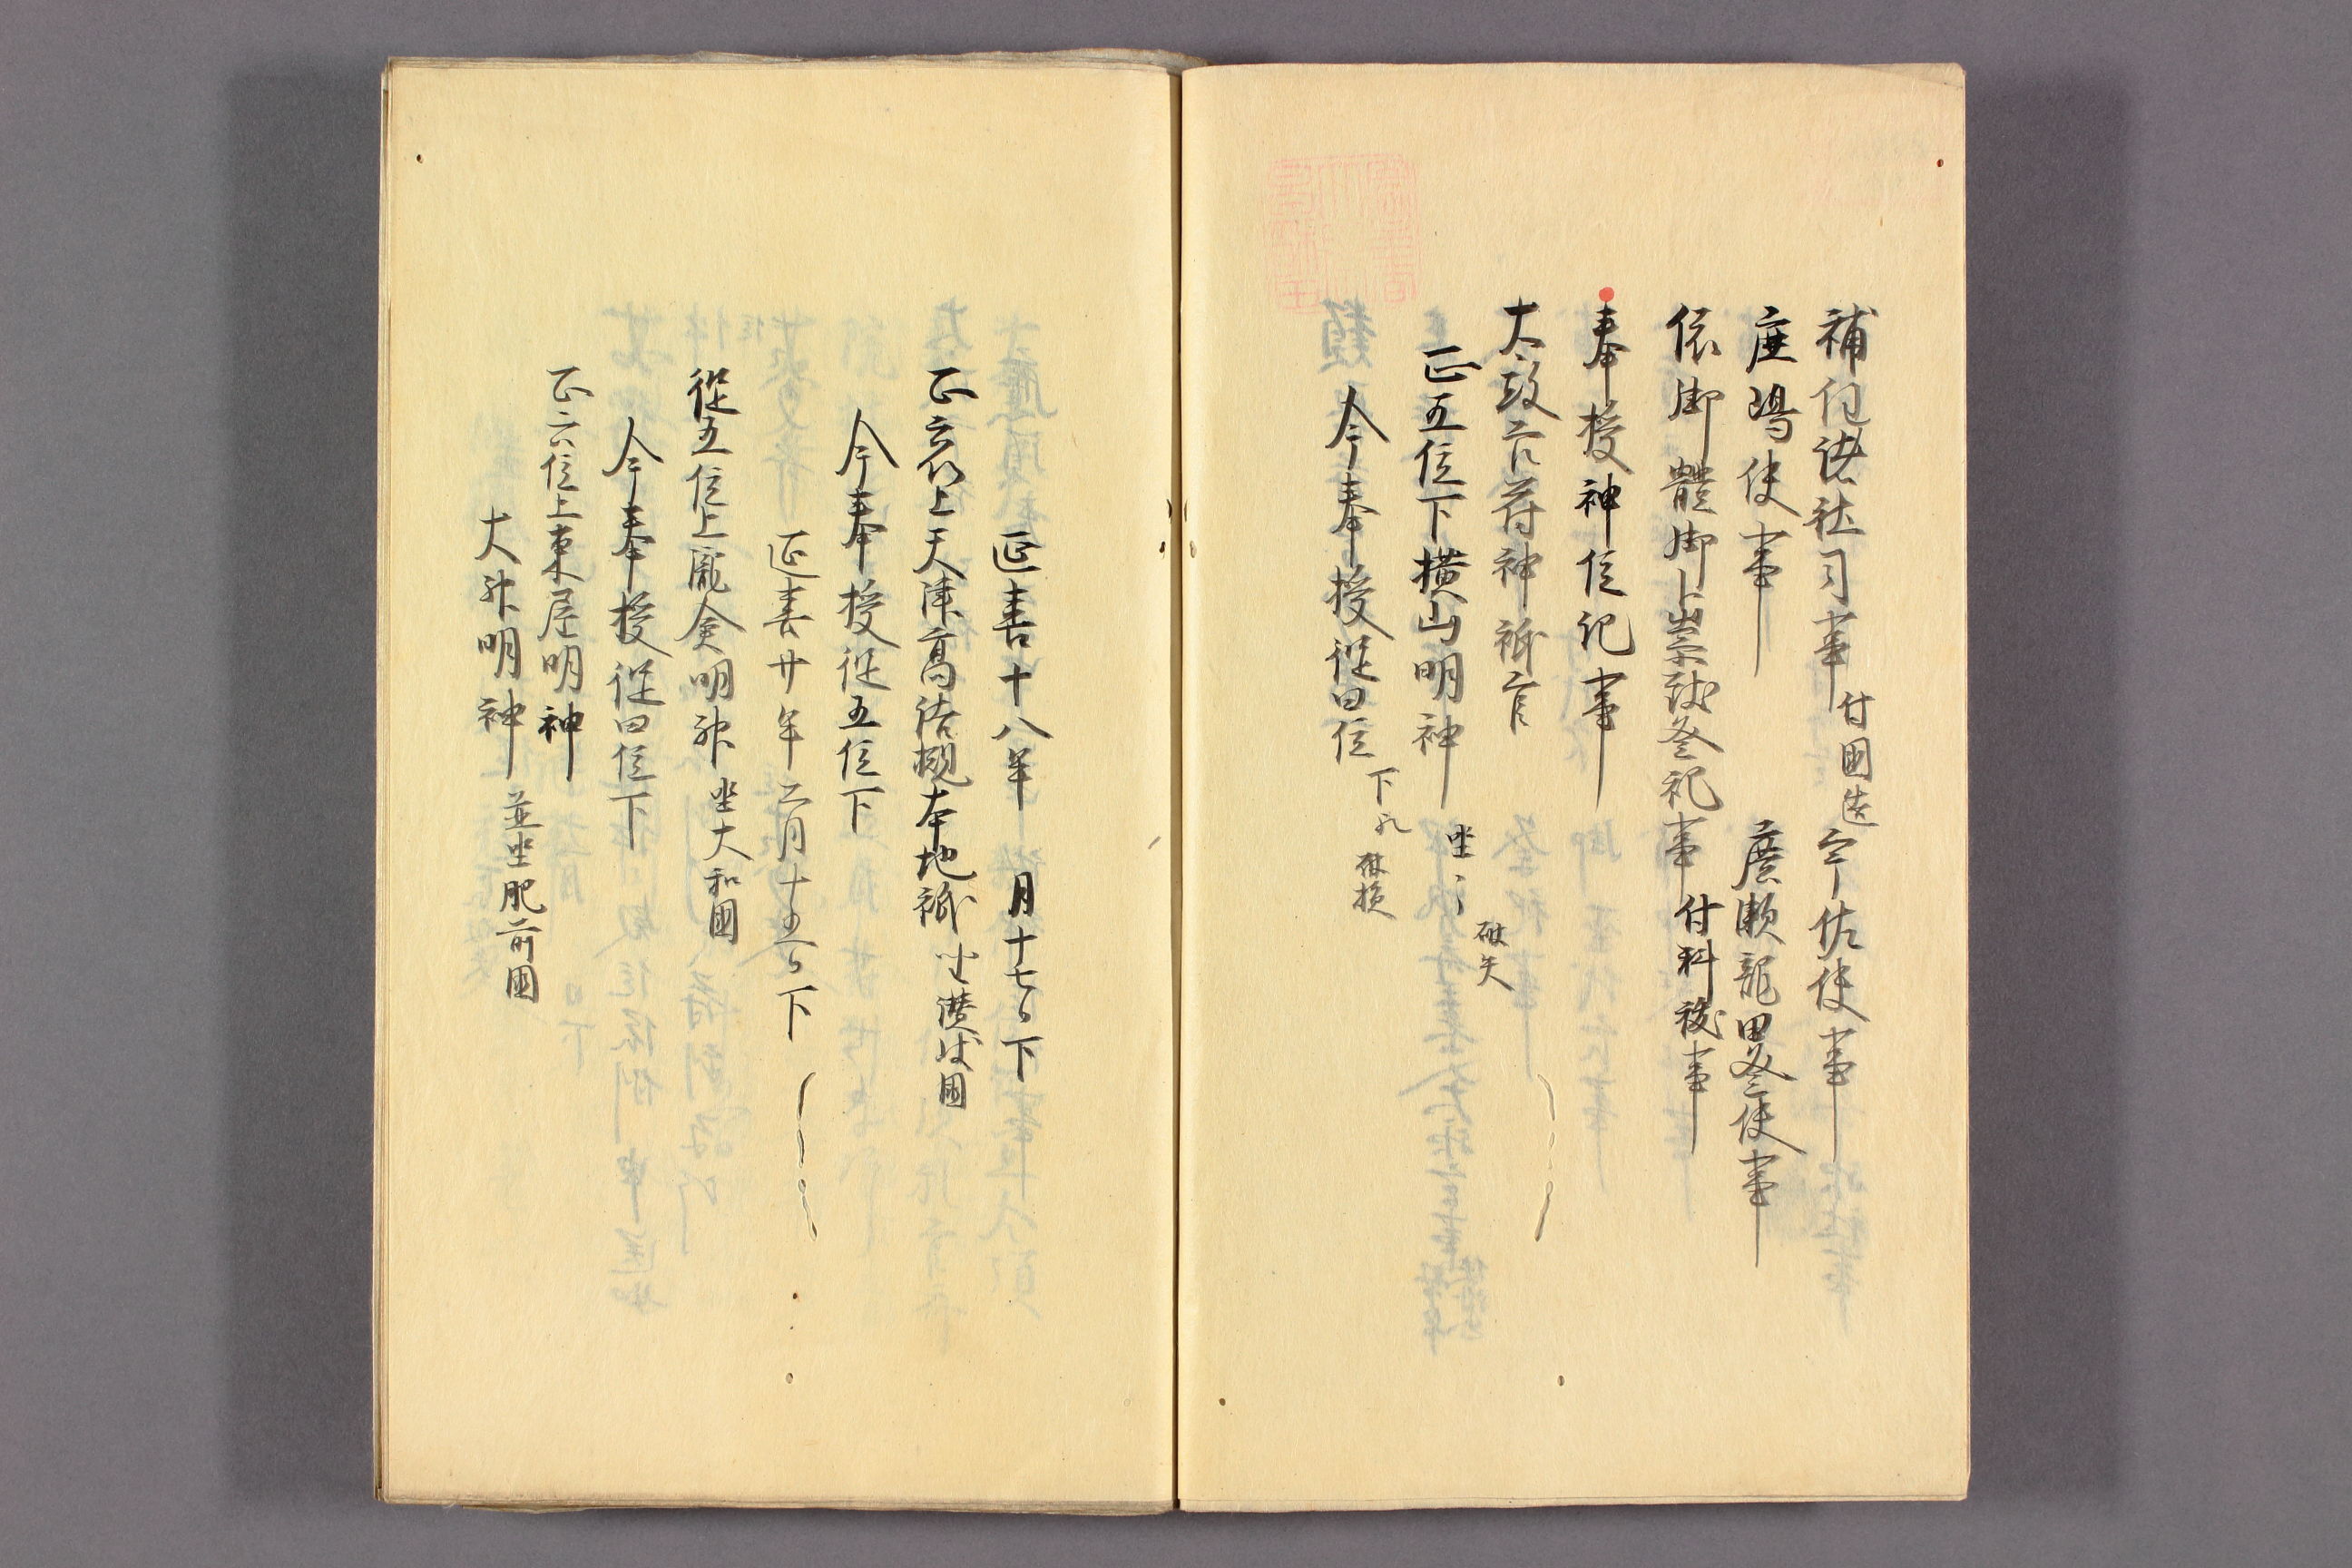 補任諸社司事 付國造 宇佐使事
鹿嶋使事 廣瀬龍田祭使事
依御體御卜崇致祭祀事 付科祓事
奉授神位記事
太政官符神祇官
正五位下横山明神 坐〻 破失
今奉授從四位下 破損
延喜十八年 月十七日下
正六位上天津高結槻本地祇 坐讃岐國
今奉授從五位下
延喜廿年二月十五日下
從五位上龍倉明神 坐大和國
今奉授從四位下
正六位上東屋明神
大神明神 並坐肥前國